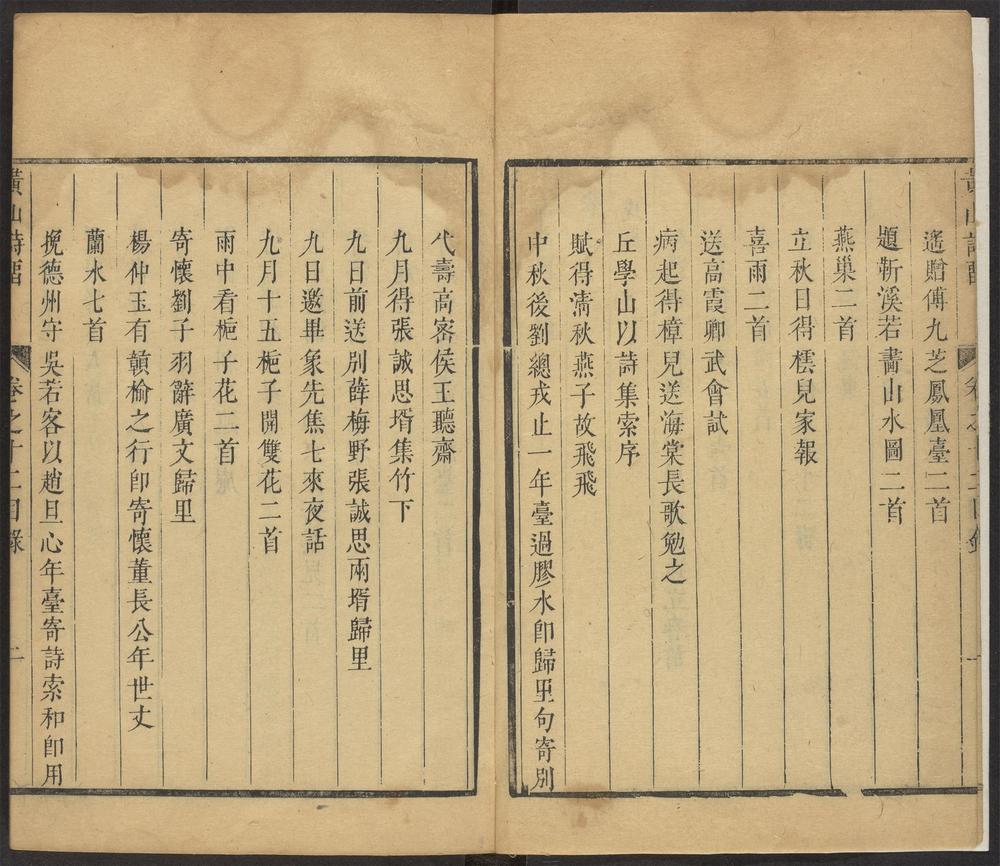 遙贈傅九芝鳳凰臺二首
題靳溪若畵山水圖二首
燕巢二首
立秋日得橒兒家報
喜雨二首
送高霞卿武會試
病起得樟兒送海棠長歌勉之
丘學山以詩集索序
賦得淸秋燕子故飛飛
中秋後劉總戎止一年臺過膠水卽歸里句寄別
代壽高密侯王聽齋
九月得張誠思壻集竹下
九日前送別薛梅野張誠思兩壻歸里
九日邀畢象先焦七來夜話
九月十五梔子開雙花二首
雨中看梔子花二首
寄懷劉子羽辭廣文歸里
楊仲玉有贛榆之行卽寄懷董長公年世丈
蘭水七首
挽德州守吳若客以趙旦心年臺寄詩索和卽用
黃山詩留 卷之十二目錄 二